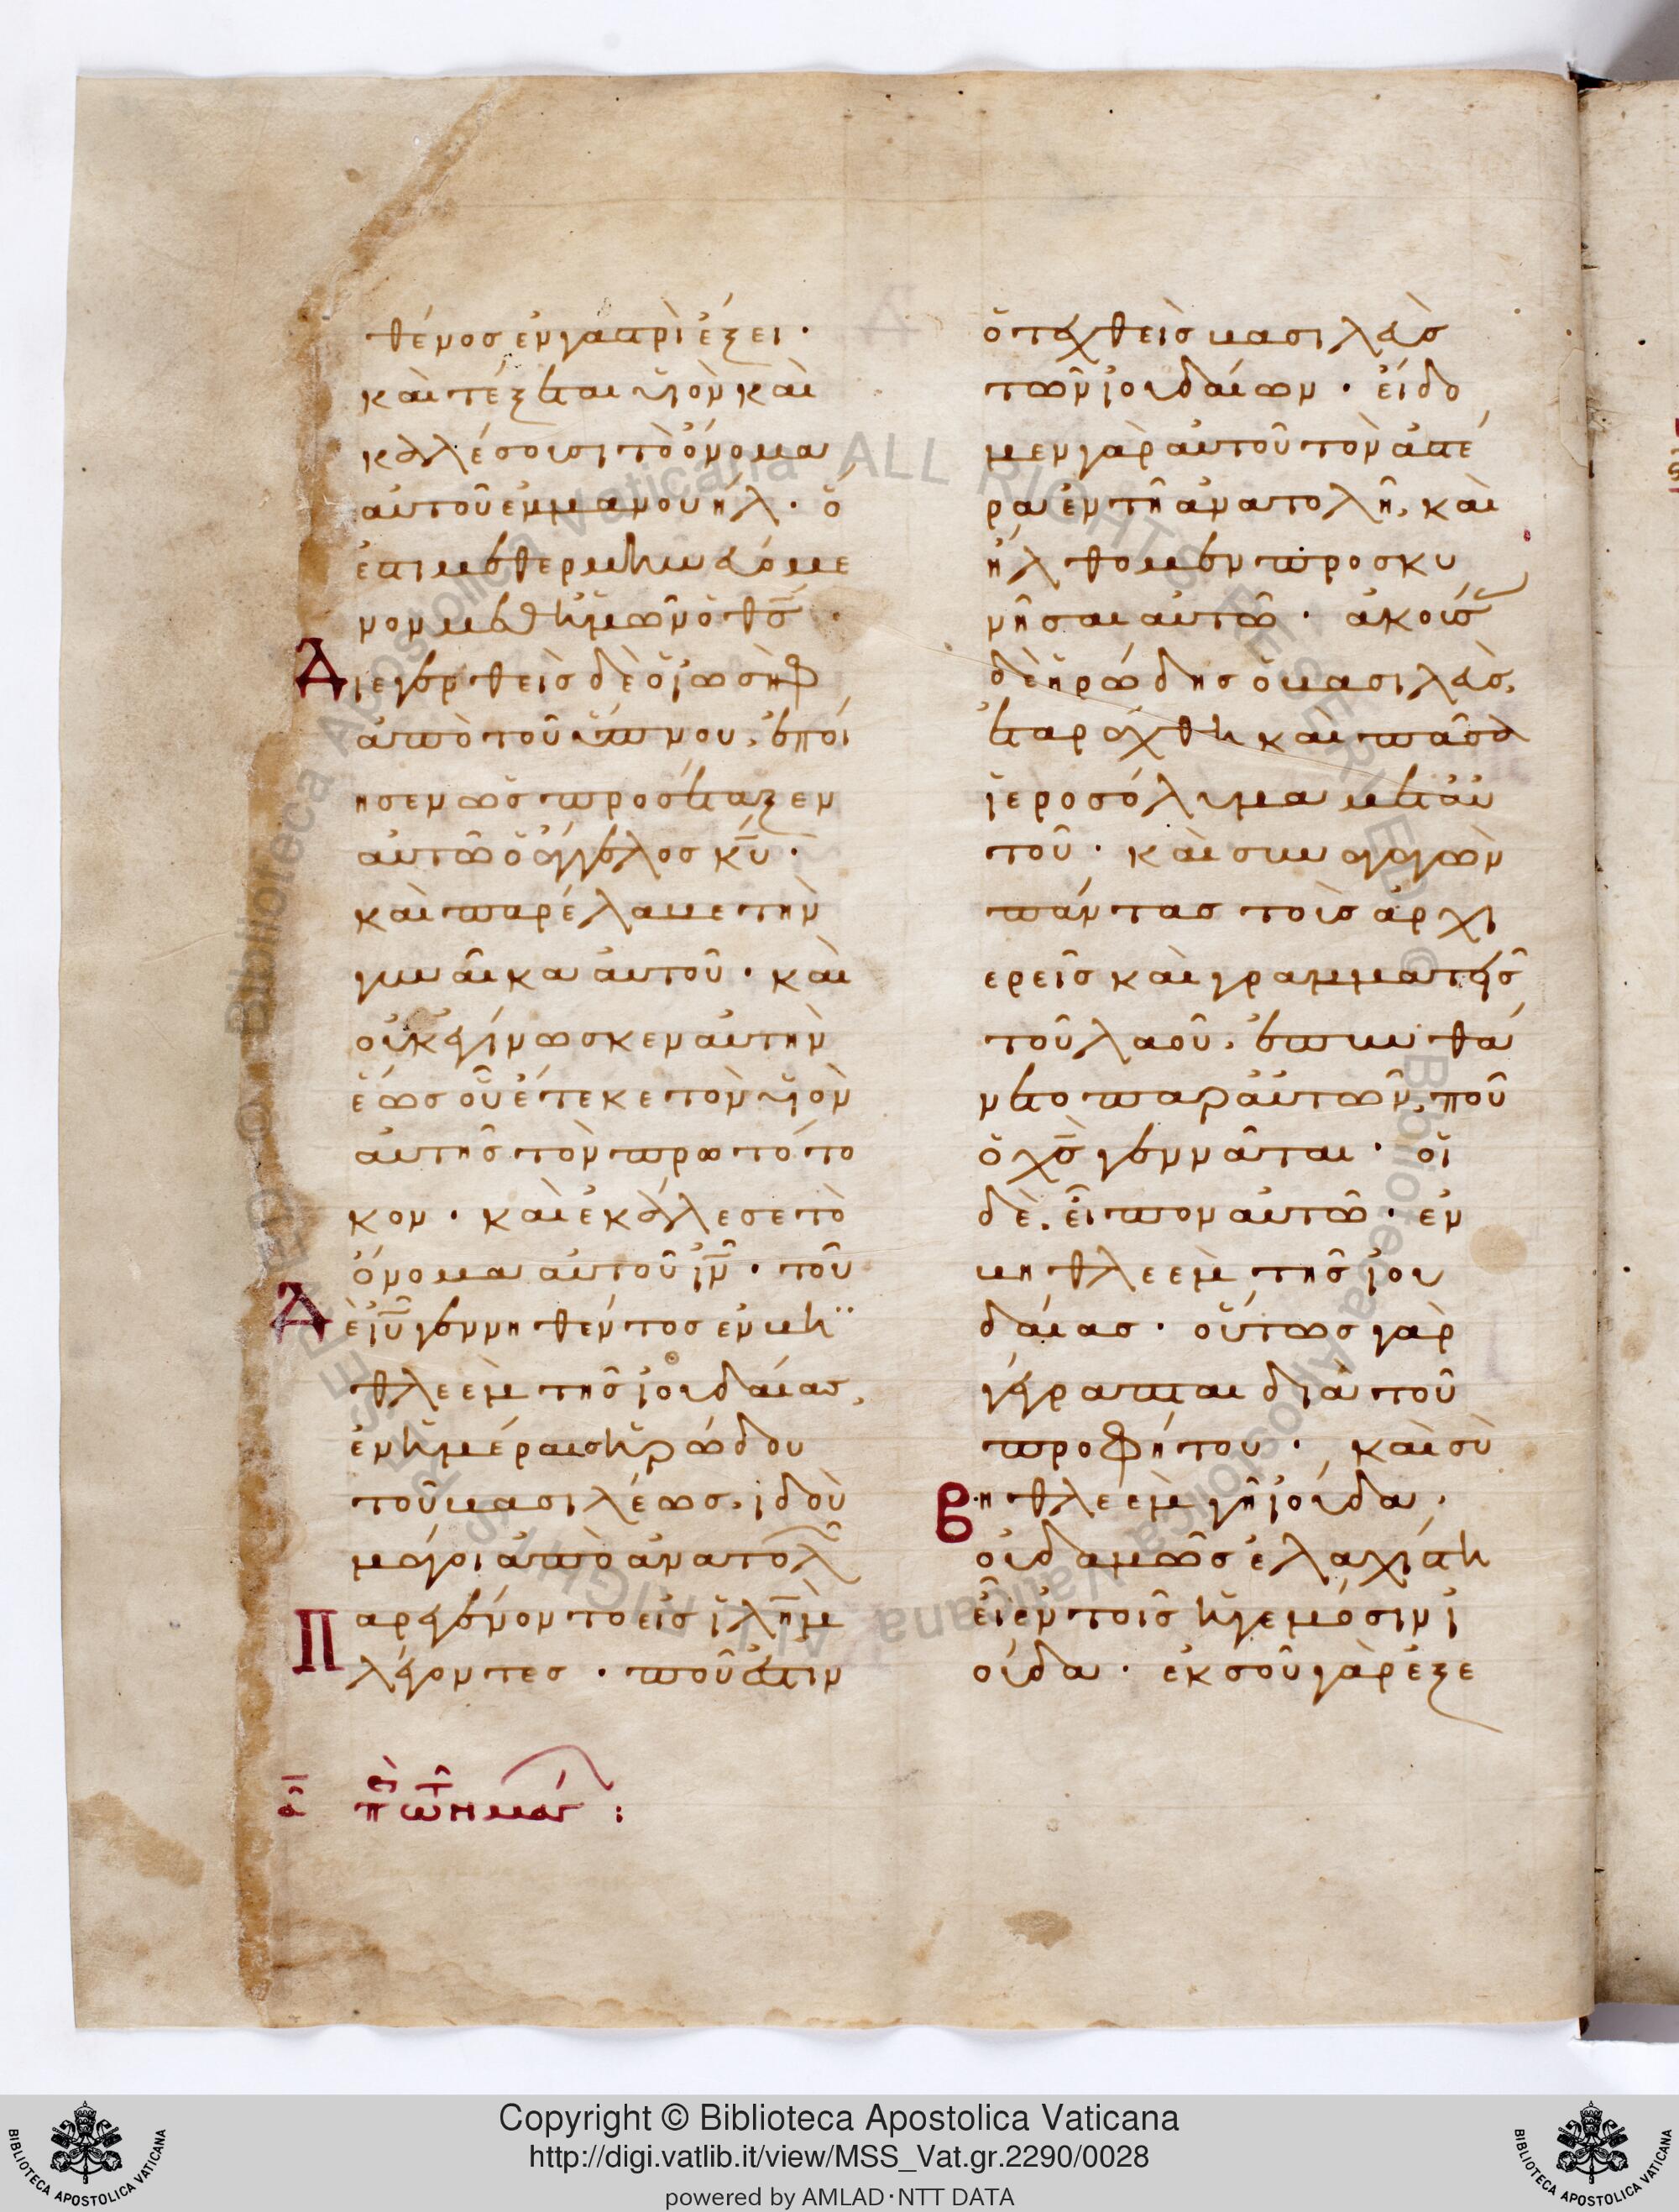 θένος ἐν γαστρὶ ἕξει ·
καὶ τέξεται υἱὸν καὶ
καλέσουσι τὸ ὄνομα
αὐτοῦ ἐμμανουήλ · ὅ
ἐστι μεθερμηνευόμε
νον μεθ ἡμῶν ὁ θς ·
Διεγερθεὶς δὲ ὁ ἰωσὴφ
ἀπὸ τοῦ ὕπνου, ἐποί
ησεν ὡς προσέταξεν
αὐτῶ ὁ ἄγγελος κυ ·
καὶ παρέλαβε τὴν
γυναῖκα αὐτοῦ · καὶ
οὐκ ἐγίνωσκεν αὐτὴν
ἕως οὗ ἔτεκε τὸν υἱὸν
αὐτῆς τὸν πρωτότο
κον · καὶ ἐκάλεσε τὸ
ὄνομα αὐτοῦ ιν · τοῦ
Δὲ ιυ γεννηθέντος ἐν βη
θλεὲμ τῆς ἰουδαίας,
ἐν ἡμέραις ἡρώδου
τοῦ βασιλέως, ἰδοὺ
μάγοι ἀπὸ ἀνατολ
Παρεγένοντο εἰς ιλημ
λέγοντες · ποῦ ἐστιν
ὁ τεχθεὶς βασιλεὺς
τῶν ἰουδαίων · εἴδο
μεν γὰρ αὐτοῦ τὸν ἀστέ
ρα ἐν τῆ ἀνατολῆ, καὶ
ἤλθομεν προσκυ
νῆσαι αὐτῶ · ἀκούσ
δὲ ἡρώδης ὁ βασιλεὺς,
ἐταράχθη καὶ πᾶσα
ἱεροσόλυμα μετ αὐ
τοῦ · καὶ συναγαγὼν
πάντας τοὺς ἀρχι
ερεῖς καὶ γραμματεῖς
τοῦ λαοῦ, ἐπυνθά
νετο παρ αὐτῶν, ποῦ
ὁ χς γεννᾶται · οἱ
δὲ, εἶπον αὐτῶ · ἐν
βηθλεὲμ τῆς ἰου
δαίας · οὕτως γὰρ
γέγραπται διὰ τοῦ
προφήτου · καὶ σὺ
Βηθλεὲμ γῆ ἰούδα ·
οὐδαμῶς ἐλαχίστη
εἶ ἐν τοῖς ἡγεμόσιν ἰ
ούδα · ἐκ σοῦ γὰρ ἐξε
Copyright © Biblioteca Apostolica Vaticana
http://digi.vatlib.it/view/MSS_Vat.gr.2290/0028
powered by AMLAD·NTT DATA
BIBLIOTECA APOSTOLICA VATICANA
BIBLIOTECA APOSTOLICA VATICANA